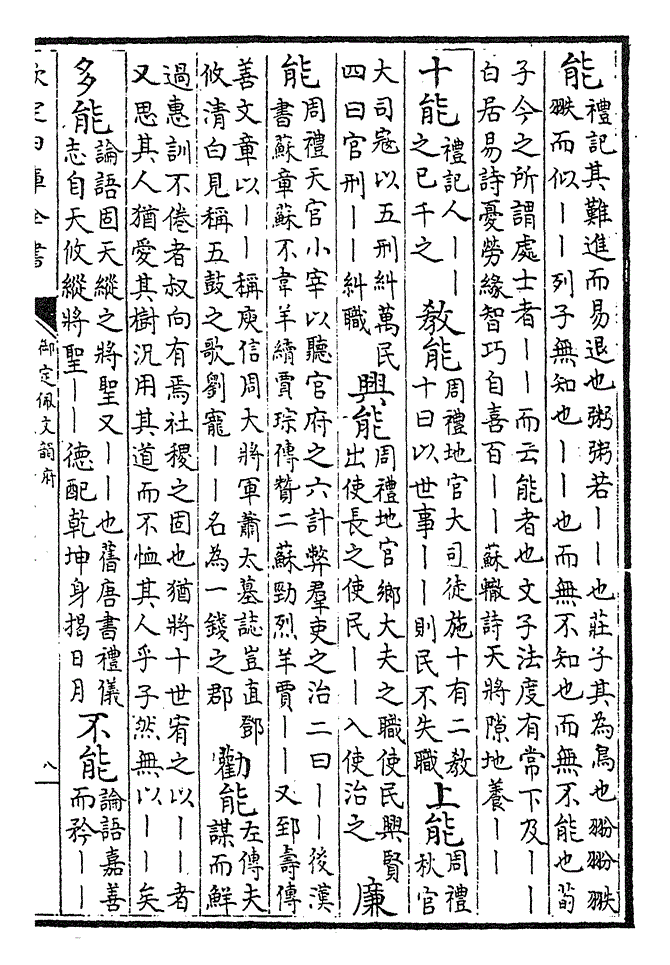 能禮記其難進而易退也粥粥若丨丨也莊子其為鳥也翂翂翐
翐而似丨丨列子無知也丨丨也而無不知也而無不能也荀
子今之所謂處士者丨丨而云能者也文子法度有常下及丨丨
白居易詩憂勞緣智巧自喜百丨丨蘇轍詩天將隙地養丨丨
十能禮記人丨丨
之已千之
敎能周禮地官大司徒施十有二教
十曰以世事丨丨則民不失職
上能周禮
秋官
大司寇以五刑糾萬民
四曰官刑丨丨糾職
興能周禮地官鄉大夫之職使民興賢
出使長之使民丨丨入使治之
廉
能周禮天官小宰以聽官府之六計弊羣吏之治二曰丨丨後漢
書蘇章蘇不韋羊續賈琮傳贊二蘇勁烈羊賈丨丨又郅壽傳
善文章以丨丨稱庾信周大將軍蕭太墓誌豈直鄧
攸清白見稱五鼓之歌劉寵丨丨名為一錢之郡
勸能左傳夫
謀而鮮
過惠訓不倦者叔向有焉社稷之固也猶將十世宥之以丨丨者
又思其人猶愛其樹況用其道而不恤其人乎子然無以丨丨矣
多能論語固天縱之將聖又丨丨也舊唐書禮儀
志自天攸縱將聖丨丨德配乾坤身揭日月
不能論語嘉善
而矜丨丨
欽定四庫全書
御定佩文韻府
八